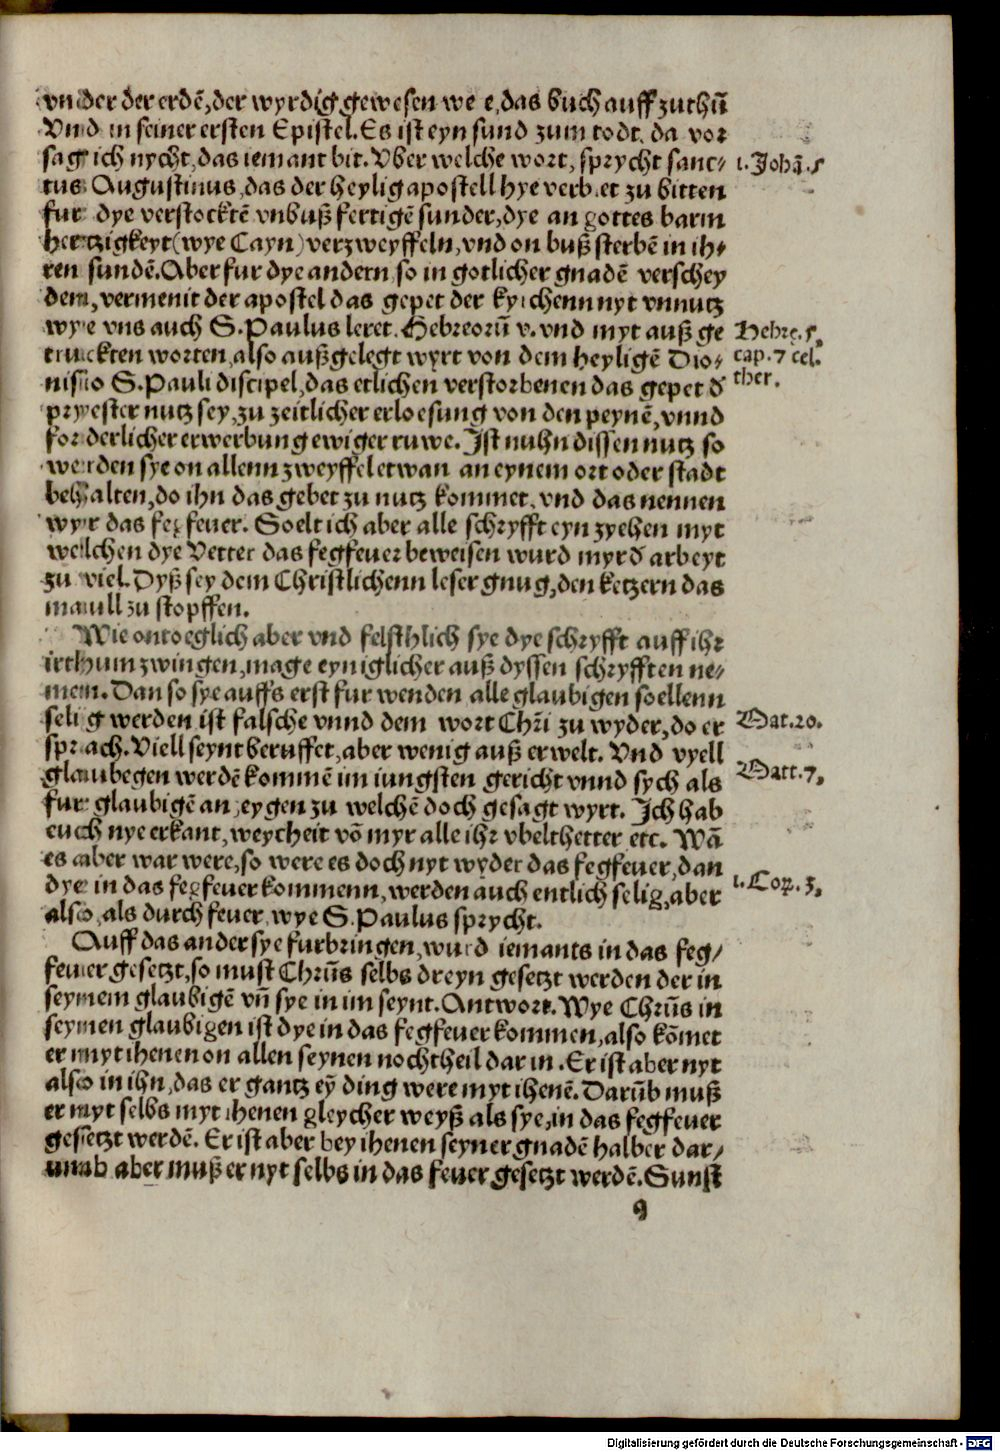 vnder der erdē, der wyrdig gewesen were, das buch auff zuthū
Vnd in seiner ersten Epistel. Es ist eyn sund zum todt, da vor
sag ich nycht, das iemant bit. Vber welche wort, sprycht sanc/
tus Augustinus, das der heylig apostell hye verbiet zu bitten
fur dye verstocktē vnbußfertigē sunder, dye an gottes barm
hertzigkeyt (wye Cayn) verzweyffeln, vnd on buß sterbē in ih/
ren sundē. Aber fur dye andern so in gotlicher gnadē verschey
dem, vermenit der apostel das gepet der kyrchenn nyt vnnutz
wye vns auch S. Paulus leret. Hebreorū v. vnd myt auß ge
truckten worten, also außgelegt wyrt von dem heyligē Dio/
nisio S. Pauli discipel, das etlichen verstorbenen das gepet d̄
pryester nutz sey, zu zeitlicher erloesung von den peynē, vnnd
forderlicher erwerbung ewiger ruwe. Ist nuhn dissen nutz so
werden sye on allenn zweyffel etwan an eynem ort oder stadt
behalten, do ihn das gebet zu nutz kommet, vnd das nennen
wyr das fegfeuer. Soelt ich aber alle schryfft eyn zyehen myt
welchen dye Vetter das fegfeuer beweisen wurd myr d̄ arbeyt
zu viel. Dyß sey dem Christlichenn leser gnug, den ketzern das
maull zu stopffen.
Wie ontoeglich aber vnd felsthlich sye dye schryfft auff ihr
irthum zwingen, mage eyn iglicher auß dyssen schryfften ne/
mem. Dan so sye auffs erst fur wenden alle glaubigen soellenn
selig werden ist falsche vnnd dem wort Chr̄i zu wyder, do er
sprach. Viell seynt beruffet, aber wenig auß erwelt. Vnd vyell
glaubegen werdē kommē im iungsten gericht vnnd sych als
fur glaubigē anzeygen zu welchē doch gesagt wyrt. Ich hab
euch nye erkant, weycheit vō myr alle ihr vbelthetter etc. Wā
es aber war were, so were es doch nyt wyder das fegfeuer, dan
dye in das fegfeuer kommenn, werden auch entlich selig, aber
also, als durch feuer, wye S. Paulus sprycht.
Auff das ander sye furbringen, wurd iemants in das feg/
feuer gesetzt, so must Chrūs selbs dreyn gesetzt werden der in
seymem glaubigē vn̄ sye in im seynt. Antwort. Wye Chrūs in
seymen glaubigen ist dye in das fegfeuer kommen, also kōmet
er myt ihenen on allen seynen nochtheil dar in. Er ist aber nyt
also in ihn, das er gantz eȳ ding were myt ihenē. Darūb muß
er myt selbs myt ihenen gleycher weyß als sye, in das fegfeuer
gesetzt werdē. Er ist aber bey ihenen seyner gnadē halber dar/
umb aber muß er nyt selbs in das feuer gesetzt werdē. Sunst
g
1. Johā. 5
Hebre. 5,
cap. 7 cel.
ther.
Mat. 20.
Matt. 7,
1. Cor. 3,
Digitalisierung gefördert durch die Deutsche Forschungsgemeinschaft - DFG